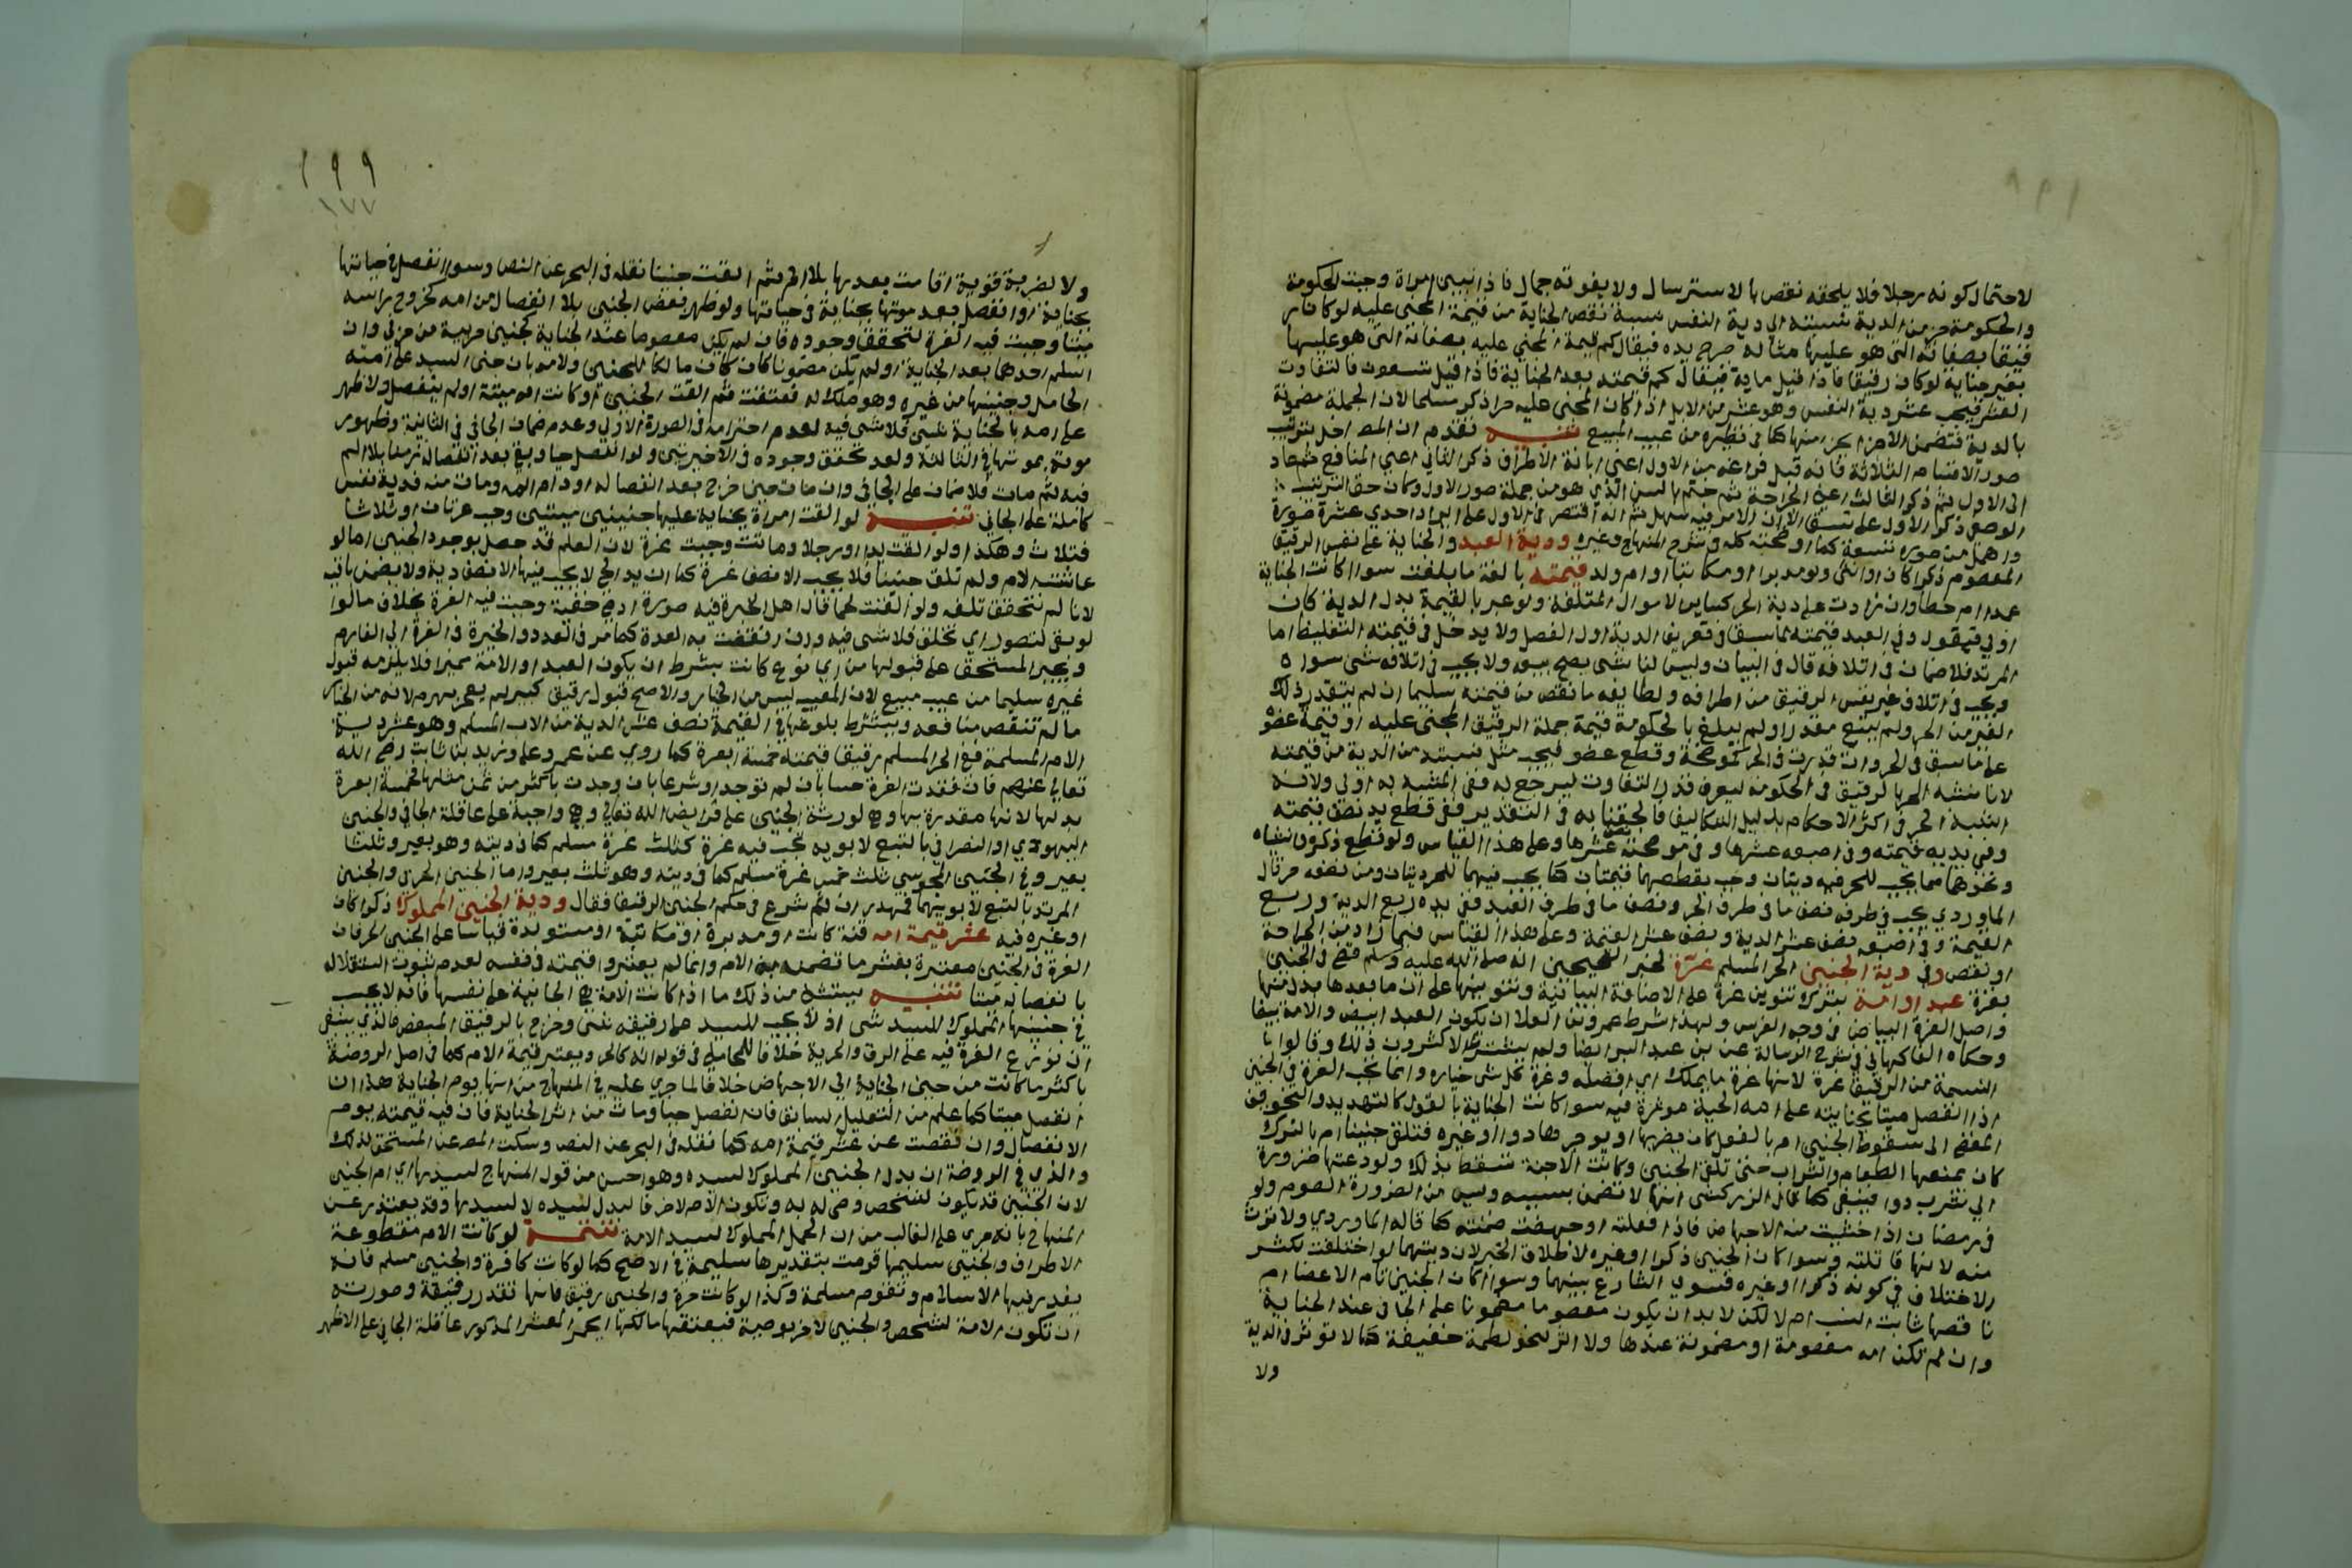 لاحتمال كونه رجلا فلا يلحقه نقص بها لاسترسال ولا يفوته جمال فاذا تبين امراة وجبت الحكومة
والحكومة جزء من الدية نسبته الى دية النفس نسبة نقص الجناية من قيمة المجنى عليه لو كان
رقيقا بصفاته التى هو عليها مثاله جرح يده فيقال كم قيمة المجني عليه بصفاته التى هو عليها
بغير جناية لو كان رقيقا فاذا قيل ماية فيقال كم قيمته بعد الجناية فاذا قيل تسعون فالتفاوت
العشر فيجب عشر دية النفس وهو عشر من الابل اذا كان المجنى عليه حرا ذكرا مسلما لان الجملة مضمونة
بالدية فتضمن الاجزا بجزء منها كما فى نظيره من عيب المبيع تنبيه تقدم ان المص اخل بترتيب
صور الاقسام الثلاثة فانه قبل فراغه من الاول اعني ابانة الاطراف ذكر الثاني اعني المنافع ثم عاد
الى الاول ثم ذكر الثالث اعني الجراحة ثم ختم بالسن الذي هو من جملة صور الاول وكان حق الترتيب
الوضعي ذكر الاول على نسق الا ان الامر فيه سهل ثم انه اقتصر فى الاول على ايراد احدي عشرة صورة
واهمل من صوره تسعة كما اوضحته كله فى شرح المنهاج وغيره ودية العبد والجناية على نفس الرقيق
المعصوم ذكرا كان او انثى ولو مدبرا او مكاتبا او ام ولد قيمته بالغة ما بلغت سوا كانت الجناية
عمدا ام خطأ وان زادت على دية الحر كساير الاموال المتلفة ولو عبر بالقيمة بدل الدية كان
اولي فيقول وفي العبد قيمته لما سبق فى تعريف الدية اول الفصل ولا يدخل فى قيمته التغليظ اما
المرتد فلا ضمان فى اتلافه قال فى البيان وليس لنا شى يصح بيعه ولا يجب فى اتلافه شى سواه
ويجب فى اتلاف غير نفس الرقيق من اطرافه ولطايفه ما نقص من قيمته سليما ان لم يتقدر ذلك
الغير من الحر ولم يتبع مقدرا ولم يبلغ بالحكومة قيمة جملة الرقيق المجنى عليه او قيمة عضوه
على ما سبق فى الحر وان قدرت فى الحر كموضحة وقطع عضو فيجب مثل نسبته من الدية من قيمته
لانا نشبه الحر بالرقيق فى الحكومة ليعرف قدر التفاوت ليرجع له ففى المشبه به اولى ولانه
اشبه الحر فى اكثر الاحكام بدليل التكاليف فالحقناه به فى التقدير ففى قطع يد نصف قيمته
وفى يديه قيمته وفى اصبعه عشرها وفى موضحته نصف عشرها وعلى هذا القياس ولو قطع ذكره وانثياه
ونحوهما مما يجب للحر فيه ديتان وجب بقطعهما قيمتان كما يجب فيهما للحر ديتان ومن نصفه حر قال
الماوردي يجب في طرفه نصف ما فى طرف الحر ونصف ما فى طرف العبد ففي يده ربع الدية وربع
القيمة وفى اصبعه نصف عشر الدية ونصف عشر القيمة وعلى هذا القياس فيما زاد من الجراحة
او نقص وفى دية الجنين الحر المسلم غرة لخبر الصحيحين انه صلى الله عليه وسلم قضى فى الجنين
بغرة عبد او امة بترك تنوين غرة على الاضافة البيانية وتنوينها على ان ما بعدها بدل منها
واصل الغرة البياض فى وجه الفرس ولهذا شرط عمرو بن العلا ان يكون العبد ابيض والامة بيضا
وحكاه الفاكهاني فى شرح الرسالة عن بن عبد البر ايضا ولم يشترط الاكثرون ذلك وقالوا
النسمة من الرقيق غرة لانها غرة ما يملك اي افضله وغرة كل شى خياره وانما تجب الغرة فى الجنين
اذا انفصل ميتا بجنايته على امه الحية موثرة فيه سوا كانت الجناية بالقول كالتهديد والتخويف
المفضى الى سقوط الجنين ام بالفعل كان يضربها او يوجرها دوا او غيره فتلقى جنينا ام بالترك
كان يمنعها الطعام والشراب حتى تلقى الجنين وكانت الاجنة تسقط بذلك ولو دعتها ضرورة
الي شرب دوا فينبغى كما قال الزركشى انها لا تضمن بسببه وليس من الضرورة الصوم ولو
فى رمضان اذا خشيت منه الاجهاض فاذا فعلته او جهضت ضمنته كما قاله الماوردي ولا ترث
منه لانها قاتلته وسوا كان الجنين ذكرا او غيره لاطلاق الخبر لان ديتهما لو اختلفت لكثر
الاختلاف في كونه ذكرا او غيره فسوي الشارع بينهما وسوا اكان الجنين تام الاعضا ام
ناقصها ثابت النسب ام لا لكن لا بد ان يكون معصوما مضمونا على الجانى عند الجناية
وان لم تكن امه معصومة او مضمونة عندها ولا اثر لنحو لطمة خفيفة كما لا توثر فى الدية
ولا
١٩٩
١٧٧
ولا لضربة قوية اقامت بعدها بلا الم ثم القت جنينا نقله فى البحر عن النص وسوا انفصل فى حياتها
بجناية او انفصل بعد موتها بجناية فى حياتها ولو ظهر بعض الجنين بلا انفصال من امه كخروج راسه
ميتا وجبت فيه الغرة لتحقق وجوده فان لم يكن معصوما عند الجناية كجنين حربية من حربي وان
اسلم احدهما بعد الجناية او لم يكن مضمونا كان كان مالكا للجنين ولامه بان جنى السيد على امته
الحامل وجنينها من غيره وهو ملك له فعتقت ثم القت الجنين او كانت امه ميتة او لم ينفصل ولا ظهر
على امه بالجناية شى فلا شى فيه لعدم احترامه فى الصورة الاولي وعدم ضمان الجاني في الثانية وظهور
موته بموتها فى الثالثة ولعدم تحقق وجوده فى الاخيرتين ولو انفصل حيا وبقي بعد انفصاله زمنا بلا الم
فيه ثم مات فلا ضمان على الجاني وان مات حين خرج بعد انفصاله او دام المه ومات منه فدية نفس
كاملة على الجاني تنبيه لو القت امراة بجناية عليها جنينين ميتين وجب غرتان او ثلاثا
فثلاث وهكذا ولو القت يدا او رجلا وماتت وجبت غرة لان العلم قد حصل بوجود الجنين اما لو
عاشت الام ولم تلق جنينا فلا يجب الا نصف غرة كما ان يد الحي لا يجب فيها الا نصف دية ولا يضمن باقيه
لانا لم نتحقق تلفه ولو القت لحما قال اهل الخبرة فيه صورة ادمي خفية وجبت فيه الغرة بخلاف ما لو
لو بقى لتصور اي تخلق فلا شى فيه وان انقضت به العدة كما مر فى العدد والخيرة فى الغرة الي الغارم
ويجبر المستحق على قبولها من اي نوع كانت بشرط ان يكون العبد او الامة مميزا فلا يلزمه قبول
غيره سليما من عيب مبيع لان المعيب ليس من الخيار والاصح قبول رقيق كبير لم يعجز بهرم لانه من الخيار
ما لم تنقص منافعه ويشترط بلوغها في القيمة نصف عشر الدية من الاب المسلم وهو عشر دية
الام المسلمة ففي الحر المسلم رقيقا قيمته خمسة ابعرة كما روي عن عمر وعلى وزيد بن ثابت رضي الله
تعالي عنهم فان فقدت الغرة حسا بان لم توجد او شرعا بان وجدت باكثر من ثمن مثلها فخمسة ابعرة
بدلها لانها مقدرة بها وهي لورثة الجنين على فرايض الله تعالي وهي واجبة على عاقلة الجاني والجنين
اليهودي او النصراني بالتبع لابويه تجب فيه غرة كثلث غرة مسلم كما فى ديته وهو بعير وثلثا
بعير وفي الجنين المجوسي ثلث خمس غرة مسلم كما فى ديته وهو ثلث بعير واما الجنين الحربي والجنين
المرتد بالتبع لابويهما فمهدران ثم شرع فى حكم الجنين الرقيق فقال ودية الجنين المملوك ذكرا كان
او غيره فيه عشر قيمة امه قنة كانت او مدبرة او مكاتبة او مستولدة قياسا على الجنين الحر فان
الغرة فى الجنين معتبرة بعشر ما تضمن به الام وانما لم يعتبروا قيمته فى نفسه لعدم ثبوت استقلاله
بانفصاله ميتا تنبيه يستثنى من ذلك ما اذا كانت الامة هي الجانية على نفسها فانه لا يجب
في جنينها المملوك للسيد شى اذ لا يجب للسيد على رقيقه شي وخرج بالرقيق المبعض فالذي ينبغى
ان توزع الغرة فيه على الرق والحرية خلافا للمحاملي فى قوله انه كالحر ويعتبر قيمة الام كما فى اصل الروضة
باكثر ما كانت من حين الجناية الي الاجهاض خلافا لما جري عليه في المنهاج من انها يوم الجناية هذا ان
انفصل ميتا كما علم من التعليل السابق فان انفصل حيا ومات من اثر الجناية فان فيه قيمته يوم
الانفصال وان نقصت عن عشر قيمة امه كما نقله فى البحر عن النص وسكت المص عن المستحق لذلك
والذي في الروضة ان بدل الجنين المملوك لسيده وهو احسن من قول المنهاج لسيدها اي ام الجنين
لان الجنين قد يكون لشخص وصى له به وتكون الام لاخر فالبدل لسيده لا لسيدها وقد يعتذر عن
المنهاج بانه جرى على الغالب من ان الحمل المملوك لسيد الامة تتمة لو كانت الام مقطوعة
الاطراف والجنين سليمها قومت بتقديرها سليمة فى الاصح كما لو كانت كافرة والجنين مسلم فانه
يقدر فيها الاسلام وتقوم مسلمة وكذا لو كانت حرة والجنين رقيق فانها تقدر رقيقة وصورته
ان تكون الامة لشخص والجنين لاخر بوصية فيعتقها مالكها ويحمل العشر المذكور عاقلة الجاني على الاظهر